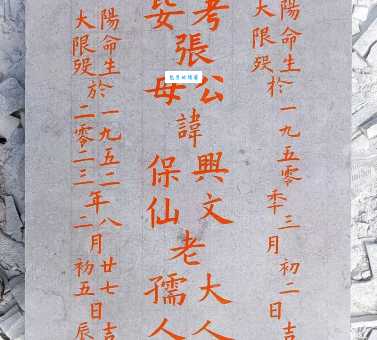 陽命生於一九五零年三月初二日吉
大限歿
考公興文大人
張諱老
妣母保仙孺人
陽命生於一九五二年八月廿七日吉
大限歿二零二三二初五辰